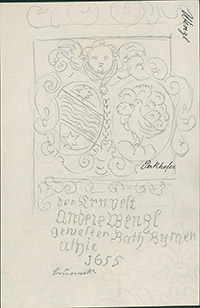 Wenzl
Enkhofer
der Ernvelt
Andere Wenzl
gewelter Rath Burger
athie
1655